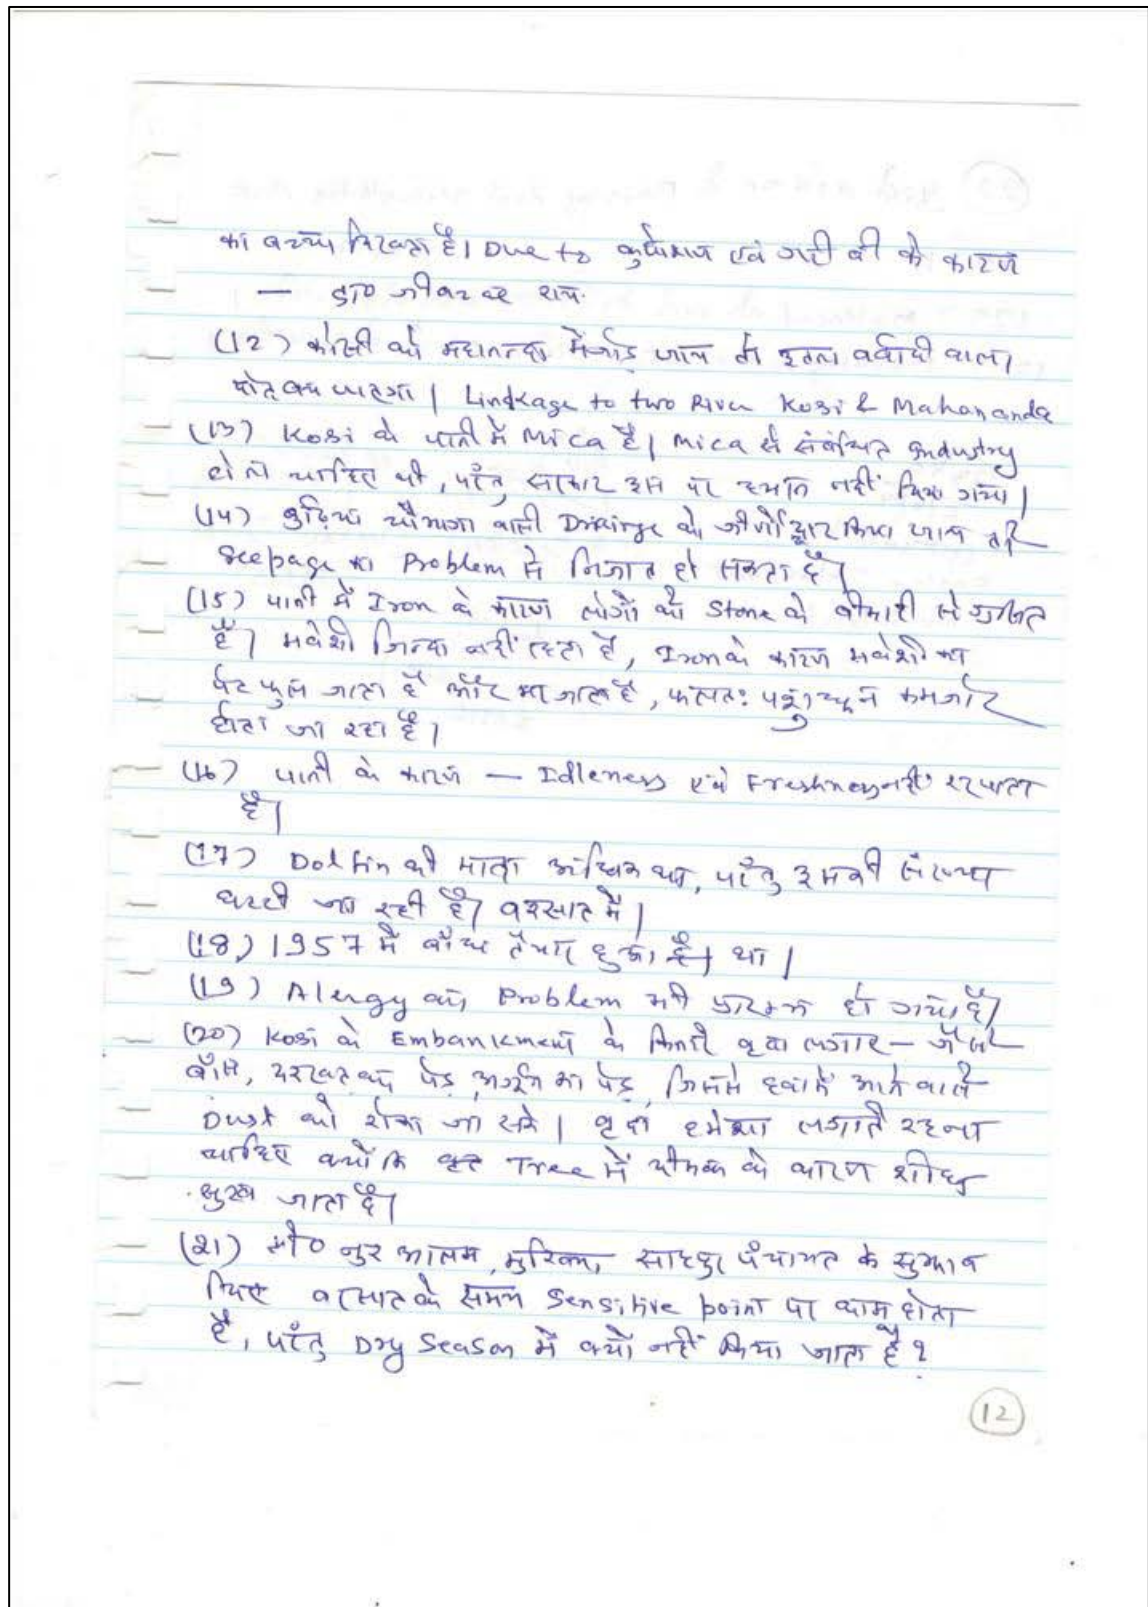 का बच्चा निकलता है। Due to कुपोषण एवं गरीबी के कारण
— डा०
(12) कोसी को महानन्दा में जोड़ा जाय तो इतना बर्बादी वाला
Lindkage to two River Kosi & Mahananda
(13) Kosi के पानी में Mica है। Mica से संबंधित Industry
होनी चाहिए थी, परंतु सरकार इस पर ध्यान नहीं दिया गया।
(14) वाली Drainge को जीर्णोद्धार किया जाय तो
Seepage का Problem से निजात हो सकता है।
(15) पानी में Iron के कारण लोगों को Stone के बीमारी से ग्रसित
है। मवेशी जिन्दा नहीं रहता है, Iron के कारण मवेशी का
पेट फुल जाता है और मर जाता है, फलतः पशुधन कमजोर
होता जा रहा है।
(16) पानी के कारण — Idleness एवं Freshness नहीं रह पाता
है।
(17) Dolfin की मात्रा अधिक था, परंतु इसकी संख्या
घटती जा रही है। बरसात में।
(18) 1957 में बाँध तैयार हुआ है। था।
(19) Alergy का Problem भी प्रारम्भ हो गया है।
(20) Kosi के Embankment के किनारे वृक्ष लगाए – जैसे
बाँस, का पेड़, अर्जुन का पेड़, जिससे हवा में आने वाले
Dust को रोका जा सके। वृक्ष हमेशा लगाते रहना
चाहिए क्योंकि Tree में दीमक के कारण शीघ्र
सुख जाता है।
(21) मो० नुर आलम, मुखिया, पंचायत के सुझाव
दिए बरसात के समय Sensitive point पर काम होता
है, परंतु Dry Season में क्यों नहीं किया जाता है?
12